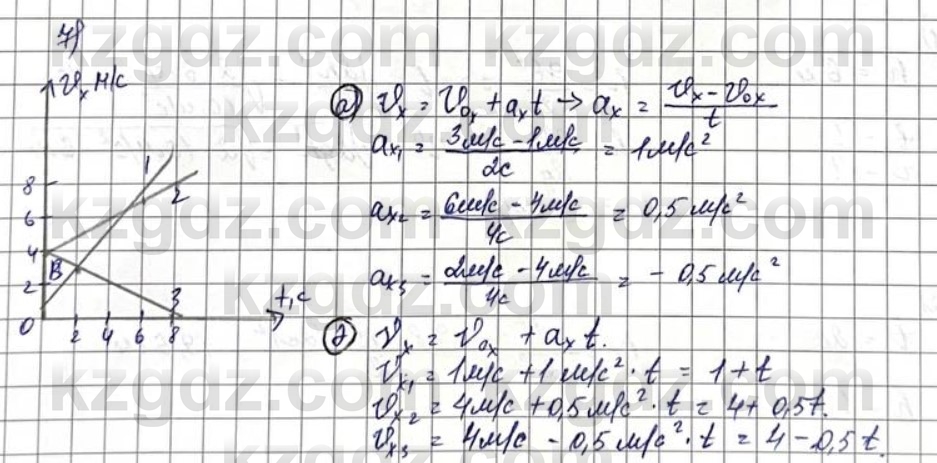 7)
v_x м/с
8
6
4
2
0
2 4 6 8
t,с
1
2
3
В
а) v_x = v_0x + a_x t → a_x = (v_x - v_0x) / t
a_x1 = (3м/с - 1м/с) / 2с = 1м/с²
a_x2 = (6м/с - 4м/с) / 4с = 0,5 м/с²
a_x3 = (2м/с - 4м/с) / 4с = - 0,5 м/с²
v_x = v_0x + a_x t.
v_x1 = 1м/с + 1м/с² · t = 1 + t
v_x2 = 4м/с + 0,5м/с² · t = 4 + 0,5t.
v_x3 = 4м/с - 0,5 м/с² · t = 4 - 0,5 t.
kzgdz.com